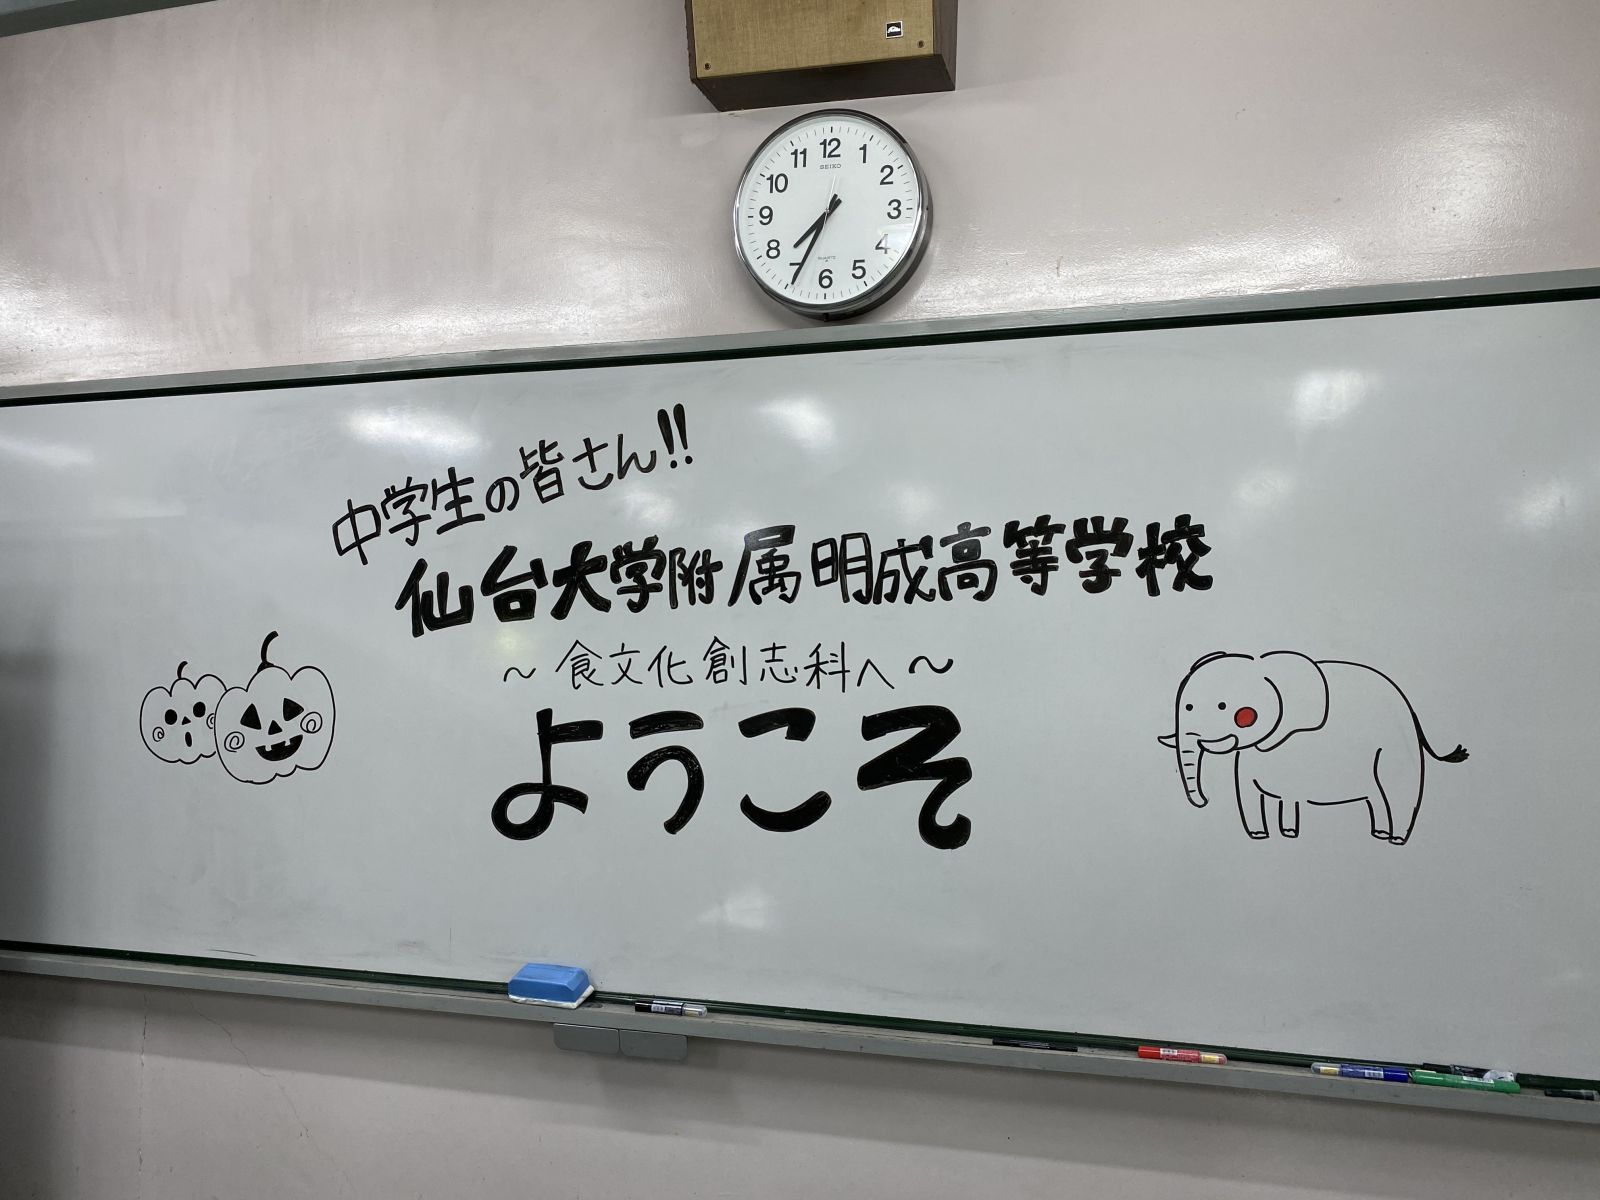 12
1
2
3
4
5
6
7
8
9
10
11
SEIKO
QUARTZ
中学生の皆さん!!
仙台大学附属明成高等学校
～食文化創志科へ～
ようこそ